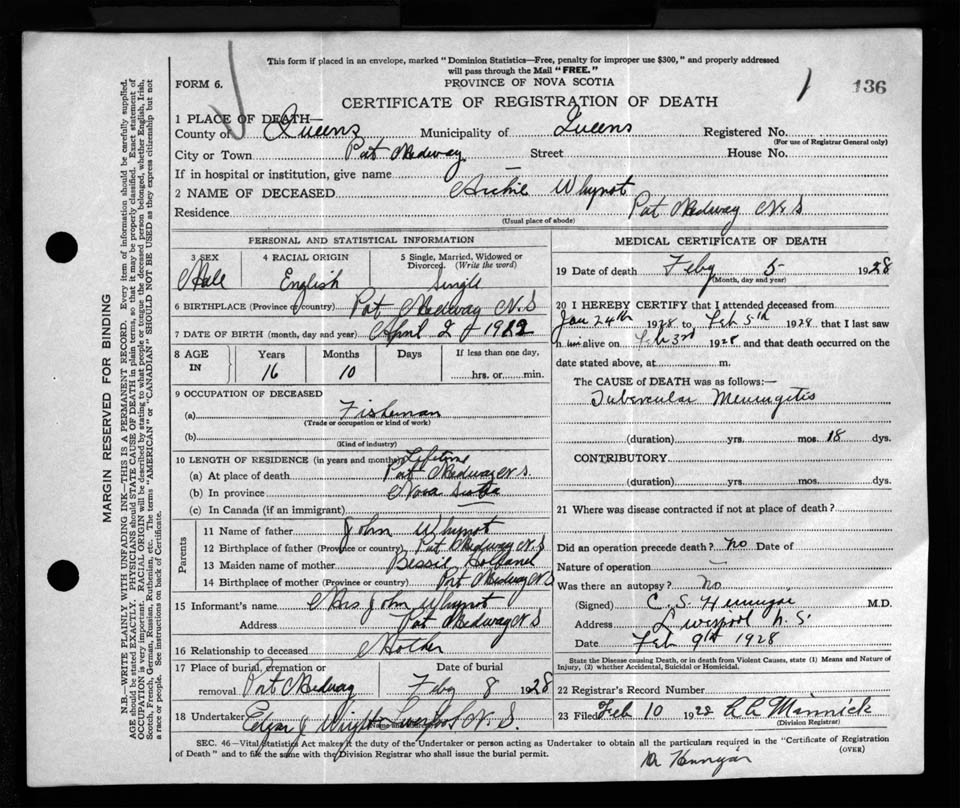 This form if placed in an envelope, marked "Dominion Statistics—Free, penalty for improper use $300," and properly addressed
will pass through the Mail "FREE."
FORM 6. PROVINCE OF NOVA SCOTIA 136
CERTIFICATE OF REGISTRATION OF DEATH
1 PLACE OF DEATH—
County of Queens Municipality of Queens Registered No.
(For use of Registrar General only)
City or Town Port Medway Street House No.
If in hospital or institution, give name —
2 NAME OF DECEASED Archie Whynot
Residence Port Medway N.S
(Usual place of abode)
MARGIN RESERVED FOR BINDING
N.B.—WRITE PLAINLY WITH UNFADING INK—THIS IS A PERMANENT RECORD. Every item of information should be carefully supplied.
AGE should be stated EXACTLY. PHYSICIANS should STATE CAUSE OF DEATH in plain terms, so that it may be properly classified. Exact statement of
OCCUPATION is very important. RACIAL ORIGIN will be described by stating to what people or tongue the deceased person belonged, whether English, Irish,
Scotch, French, German, Russian, Ruthenian, etc. The terms "AMERICAN" or "CANADIAN" SHOULD NOT BE USED as they express citizenship but not
a race or people. See instructions on back of Certificate.
PERSONAL AND STATISTICAL INFORMATION
3 SEX 4 RACIAL ORIGIN 5 Single, Married, Widowed or
Divorced. (Write the word)
Male English Single
6 BIRTHPLACE (Province or country) Port Medway N.S
7 DATE OF BIRTH (month, day and year) April 2
8 AGE IN Years Months Days If less than one day,
16 10 hrs. or min.
9 OCCUPATION OF DECEASED
(a) Fisheman
(Trade or occupation or kind of work)
(b)
(Kind of industry)
10 LENGTH OF RESIDENCE (in years and months) Lifetime
(a) At place of death Port Medway N.S.
(b) In province Nova Scotia
(c) In Canada (if an immigrant)
Parents
11 Name of father John Whynot
12 Birthplace of father (Province or country) Port Medway N.S
13 Maiden name of mother Bessie
14 Birthplace of mother (Province or country) Port Medway N.S
15 Informant's name Mrs John Whynot
Address Port Medway N.S
16 Relationship to deceased Mother
17 Place of burial, cremation or Date of burial
removal Port Medway Feby 8 1928
18 Undertaker Edgar J Wright Liverpool N.S.
MEDICAL CERTIFICATE OF DEATH
19 Date of death Feby 5 1928
(Month, day and year)
20 I HEREBY CERTIFY that I attended deceased from
Jan 24th 1928 to Feb 5th 1928 that I last saw
h im alive on Feb 3rd 1928 and that death occurred on the
date stated above, at m.
The CAUSE of DEATH was as follows:—
Tubercular Meningitis
(duration) yrs. mos. 18 dys.
CONTRIBUTORY
(duration) yrs. mos. dys.
21 Where was disease contracted if not at place of death?
Did an operation precede death? no Date of
Nature of operation —
Was there an autopsy? no
(Signed) C. S. Hennigar M.D.
Address Liverpool N.S.
Date Feb 9th 1928
State the Disease causing Death, or in death from Violent Causes, state (1) Means and Nature of
Injury, (2) whether Accidental, Suicidal or Homicidal.
22 Registrar's Record Number
23 Filed Feb 10 1928 Minnick
(Division Registrar)
SEC. 46—Vital Statistics Act makes it the duty of the Undertaker or person acting as Undertaker to obtain all the particulars required in the "Certificate of Registration
of Death" and to file the same with the Division Registrar who shall issue the burial permit. (OVER)
Dr Hennigar